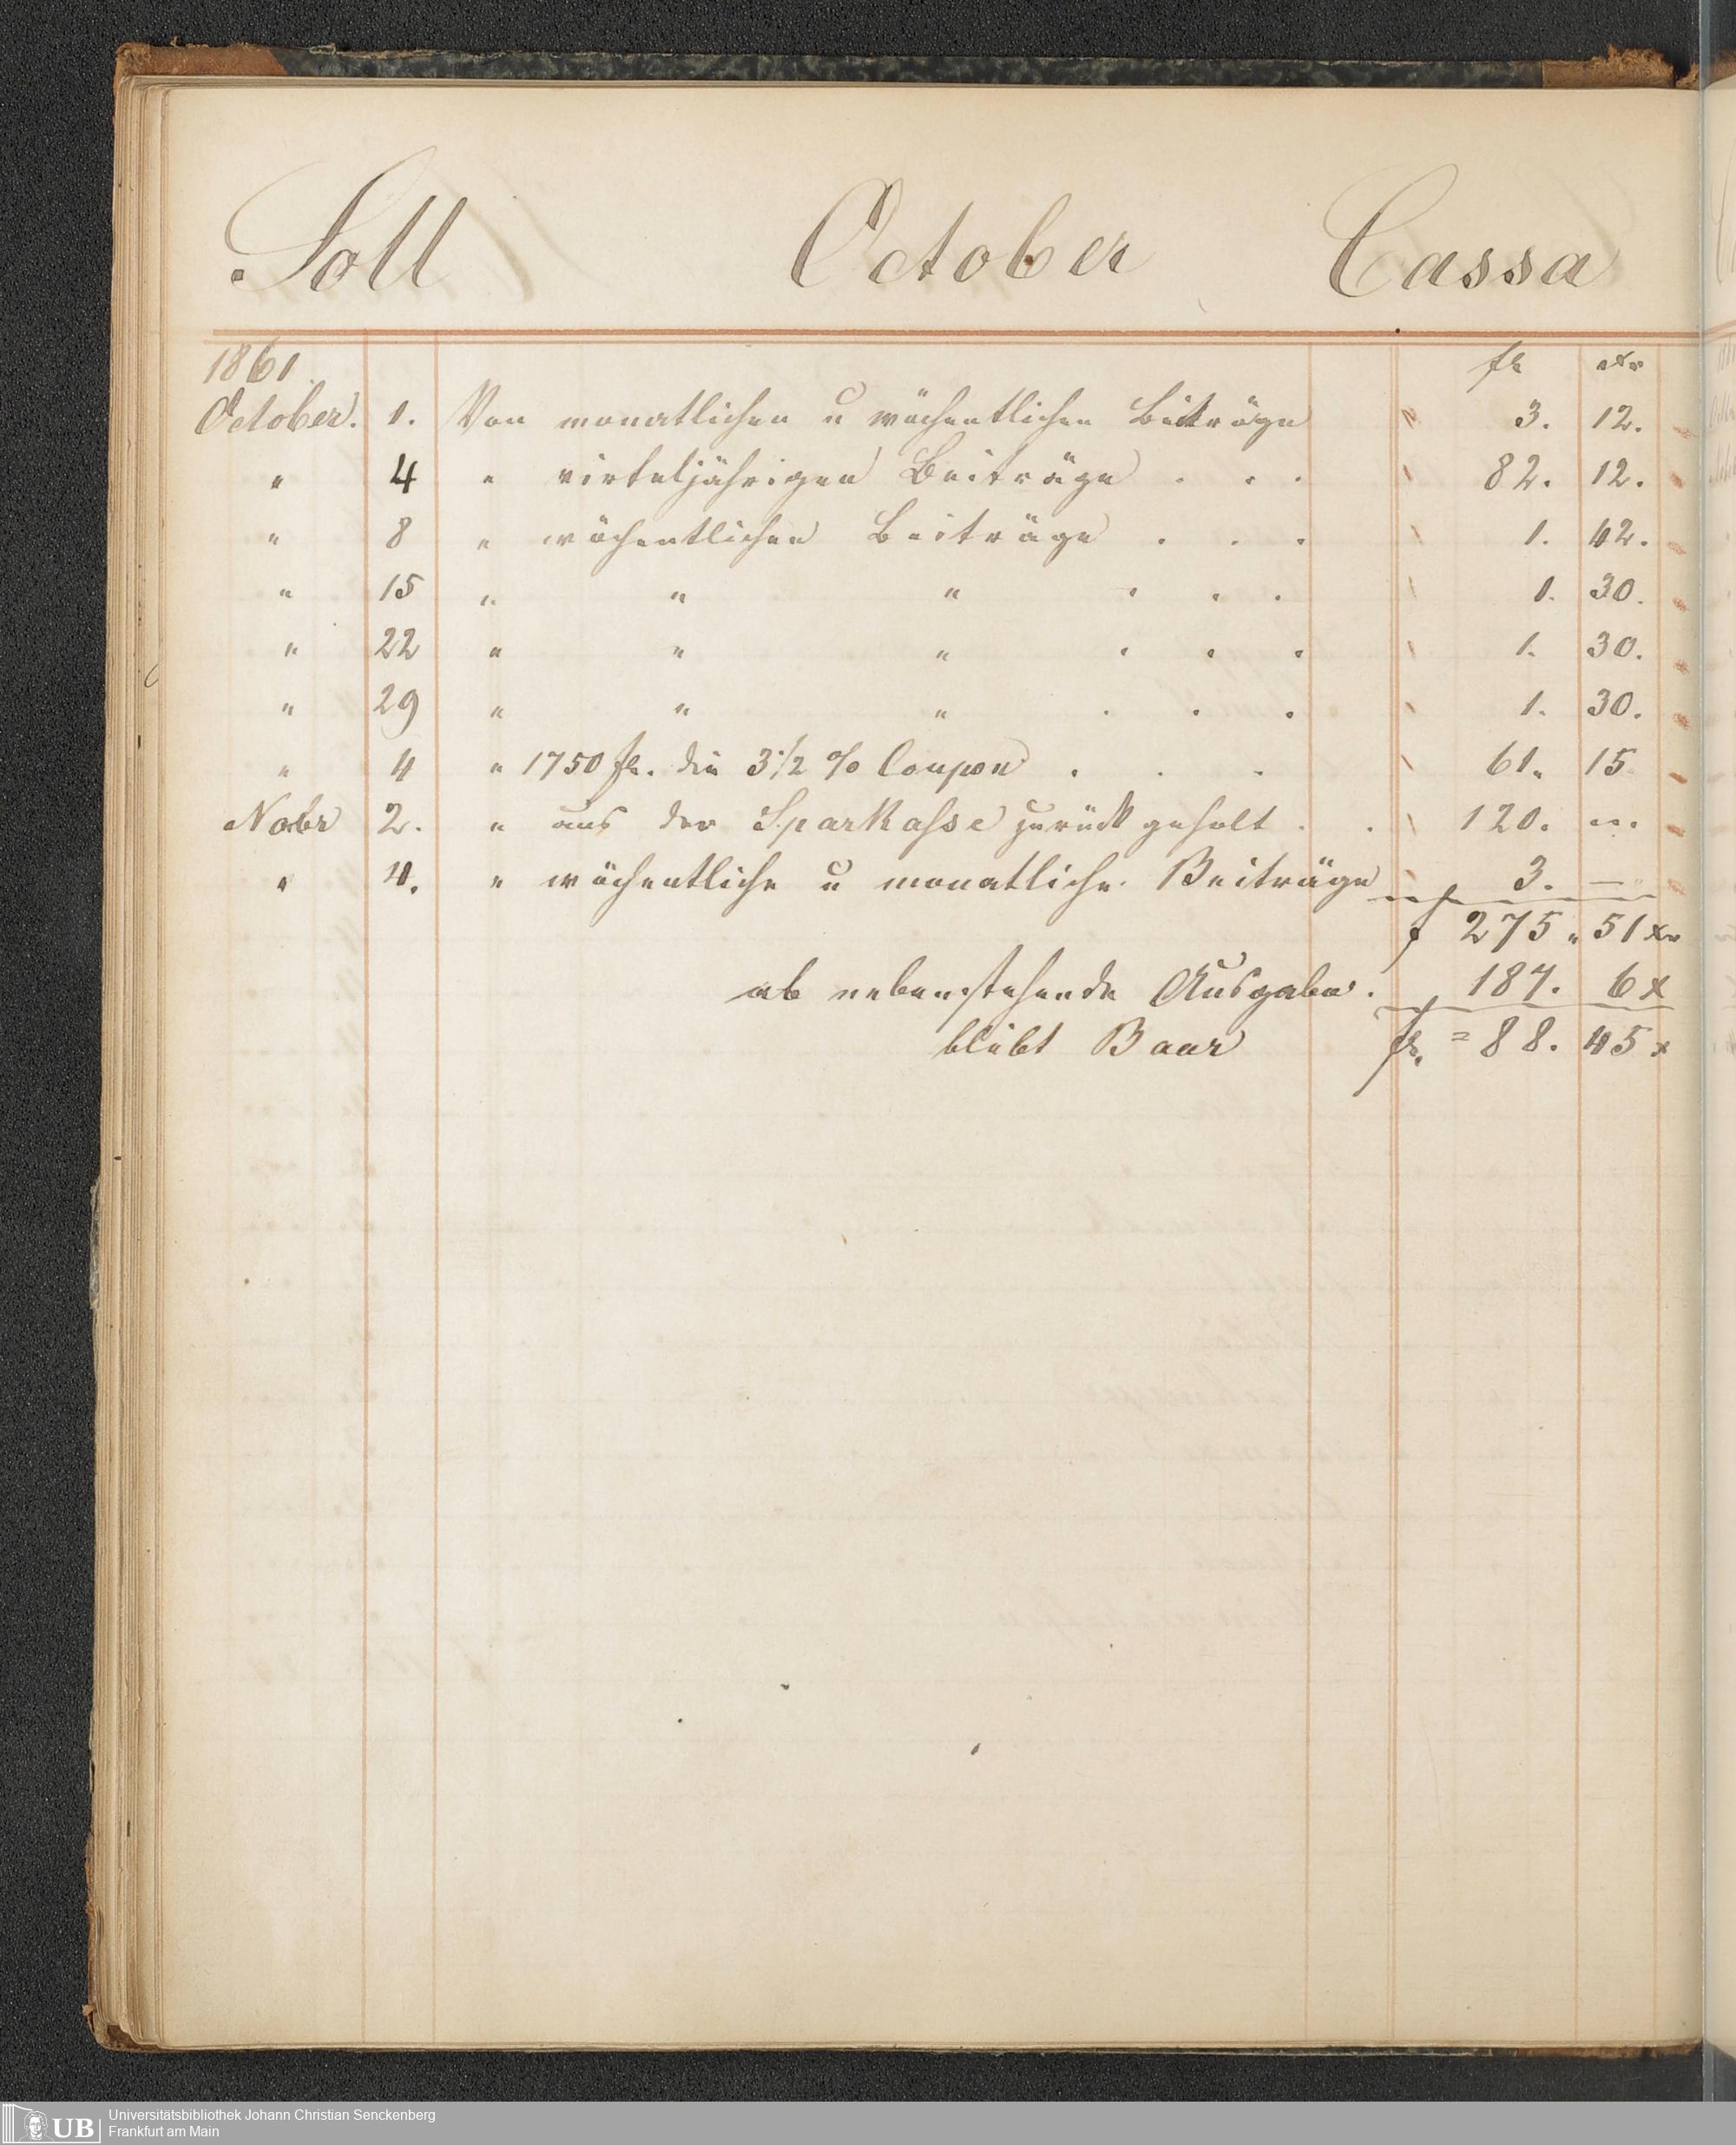 Soll October Cassa
1861 fl xr
October. 1. Von monatlichen u wöchentlichen Beiträge " 3. 12.
" 4 " virteljährigen Beiträge . . . " 82. 12.
" 8 " wöchentlichen Beiträge . . . " 1. 42.
" 15 " " " . . . " 1. 30.
" 22 " " " . . . " 1. 30.
" 29 " " " . . . " 1. 30.
" 4 " 1750 fl. die 3 1/2 % Coupon . . . " 61. 15
Nobr 2. " aus der Sparkasse zurück geholt . . " 120. "".
" 4. " wöchentliche u monatliche Beiträge " 3. —
f 275. 51 xr
ab nebenstehende Ausgaben. 187. 6 x
bleibt Baar fl. = 88. 45 x
UB Universitätsbibliothek Johann Christian Senckenberg
Frankfurt am Main